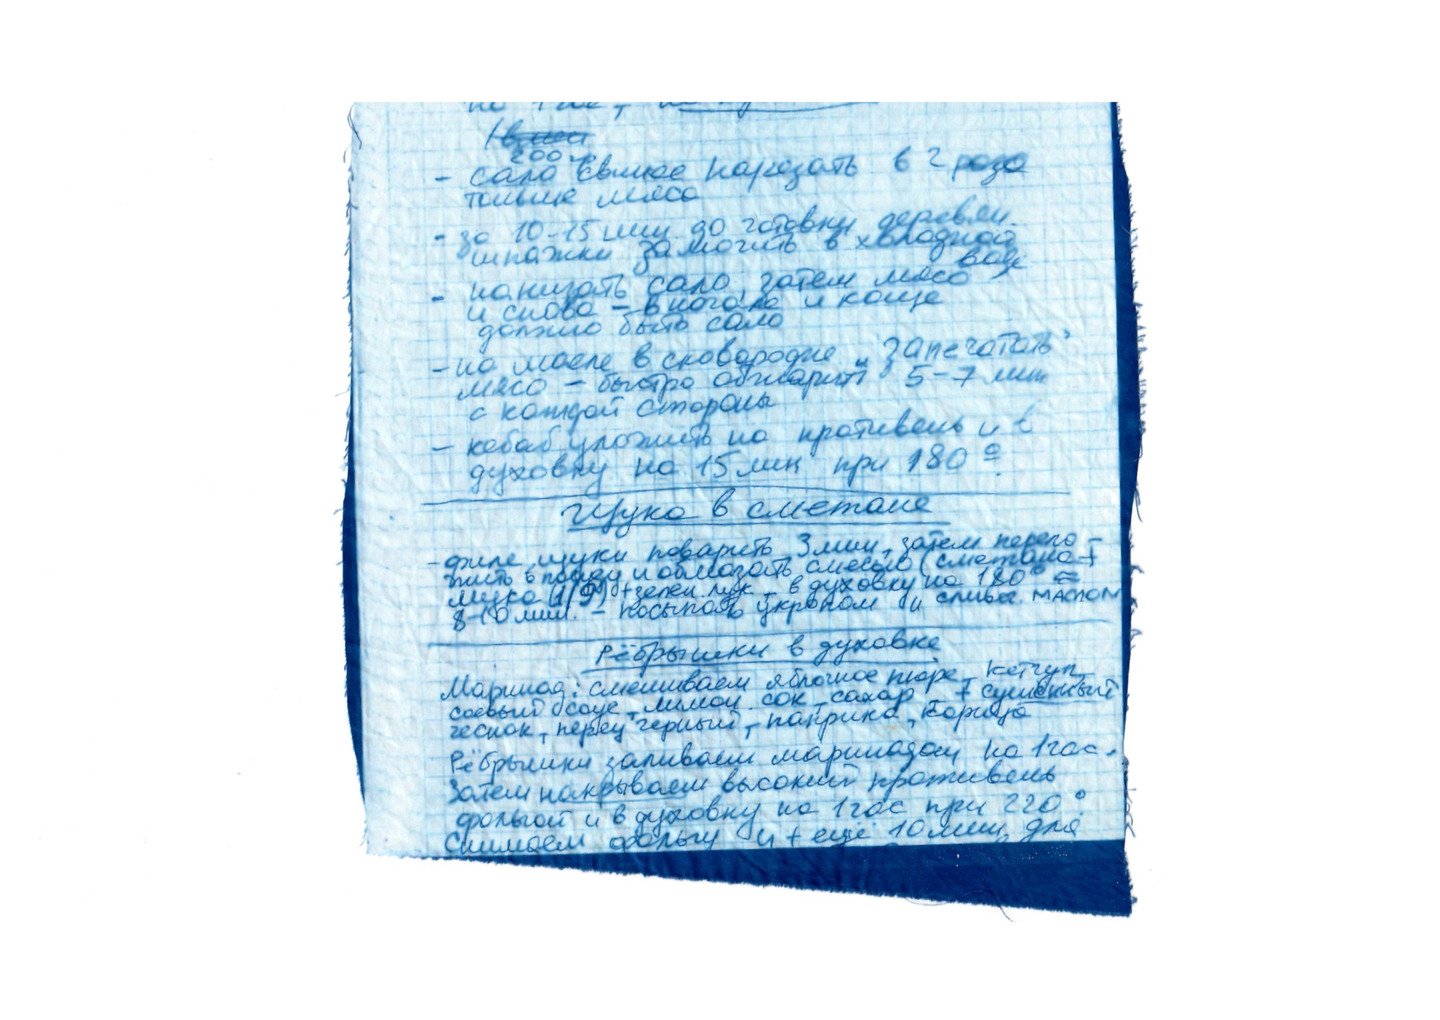 на 1 час,
200 гр
- сало свиное нарезать в 2 раза
тоньше мяса
- за 10-15 мин до готовки деревян.
шпажки замочить в холодной
воде
- нанизать сало, затем мясо
и снова - в начале и конце
должно быть сало
- на масле в сковородке "запечатать"
мясо - быстро обжарить 5-7 мин
с каждой стороны
- кебаб уложить на противень и в
духовку на 15 мин при 180°
Щука в сметане
- филе щуки поварить 3 мин, затем перело-
жить в и обмазать смесью (сметана +
мука (1/9) + зелен. лук - в духовку на 180° ≈
8-10 мин. - посыпать укропом и сливоч. маслом
Рёбрышки в духовке
Маринад: смешиваем яблочное пюре, кетчуп
соевый соус, лимон. сок, сахар, + сушенный
чеснок, перец черный, паприка, корица
Рёбрышки заливаем маринадом на 1 час.
Затем накрываем высокий противень
фольгой и в духовку на 1 час при 220°
Снимаем фольгу и + ещё 10 мин. для